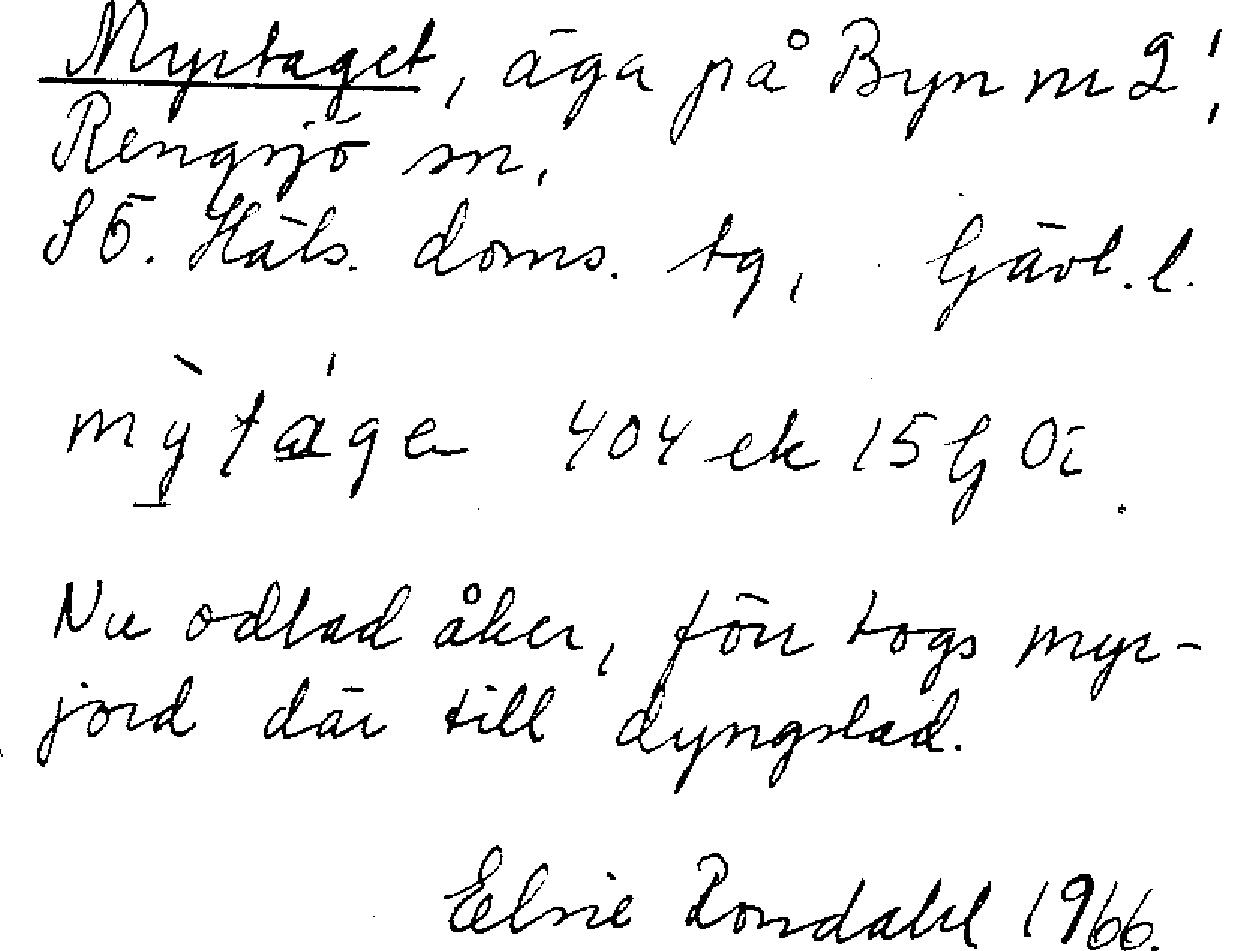 Myrtaget, äga på Byn nr 2!,
Rengsjö sn,
SÖ. Häls. doms. tg, Gävl. l.
mỳ táge 404 ek 15 G Öi
Nu odlad åker, förr togs myr-
jord där till dyngstad.
Elsie Rondahl 1966.